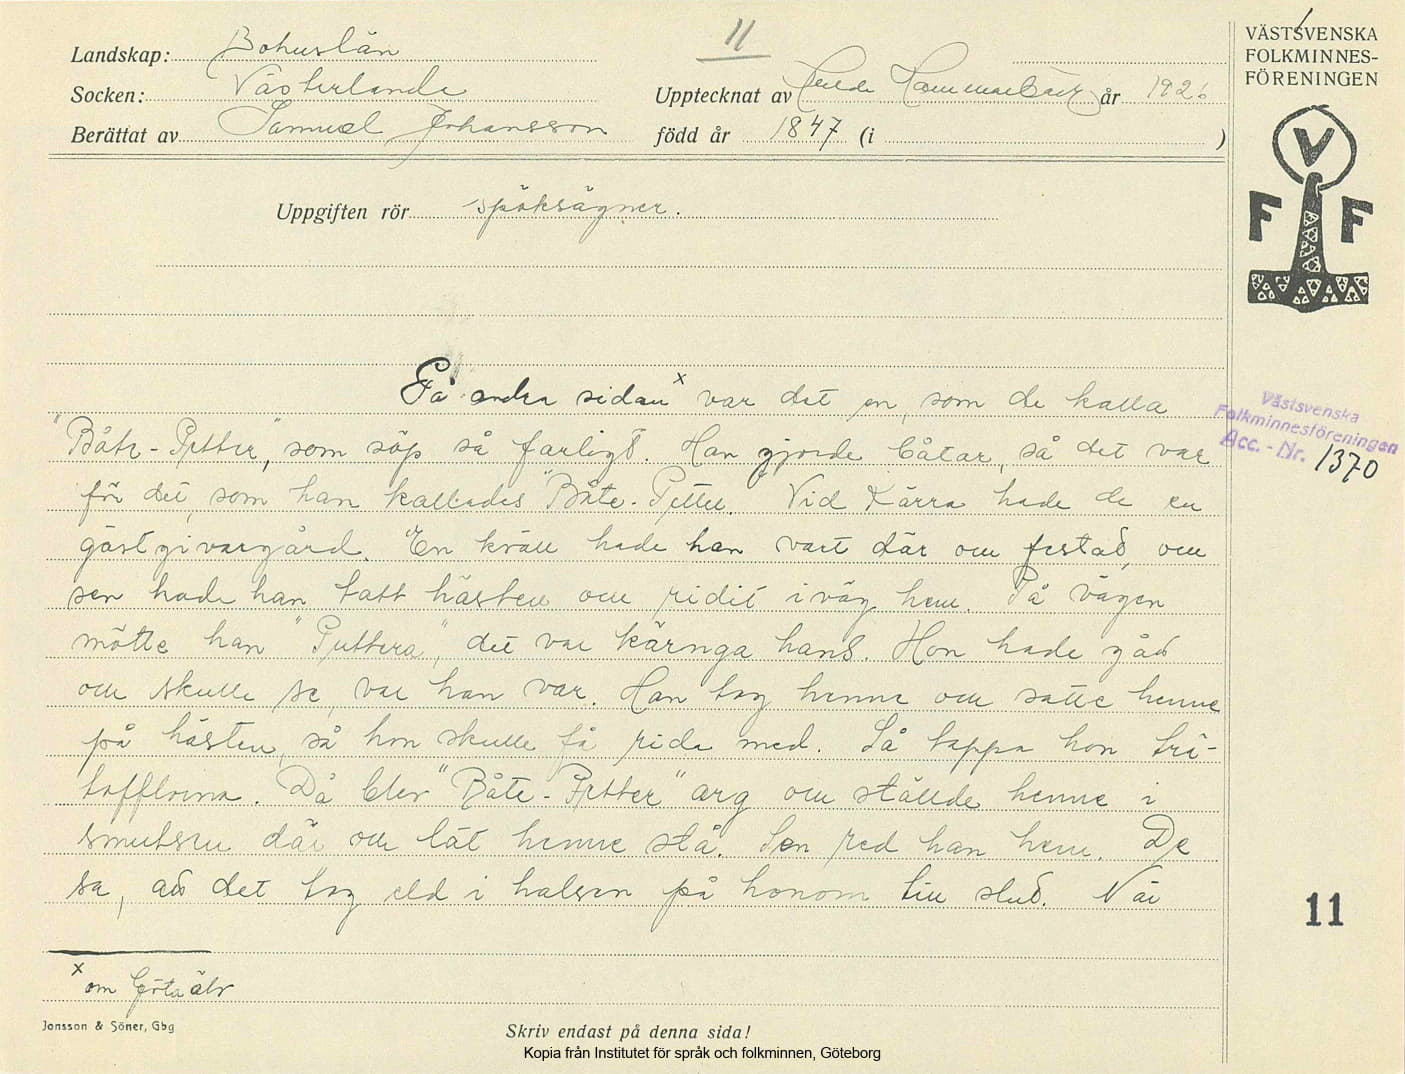 11
Landskap: Bohuslän
Socken: Västerlanda
Upptecknat av Hammarbäck år 1926
Berättat av Samuel Johansson född år 1847 (i )
Uppgiften rör spöksägner.
På andra sidan x var det en, som de kalla
"Båte-Petter", som söp så farligt. Han gjorde båtar, så det var
för det, som han kallades "Båte-Petter. Vid Kärra hade de en
gästgivargård. En kväll hade han vart där om festat, om
sen hade han tatt hästen om ridit iväg hem. På vägen
mötte han "Puttera", det var kärnga hans. Hon hade gåt
om skulle se, var han var. Han tog henne om satte henne
på hästen, så hon skulle få rida med. Så tappa hon trä-
tofflorna. Då blev "Båte-Petter" arg om ställde henne i
smutsen där om lät henne stå. Sen red han hem. De
sa, att det tog eld i halsen på honom till slut. När
x om Göta älv
Jonsson & Söner, Gbg
Skriv endast på denna sida!
Kopia från Institutet för språk och folkminnen, Göteborg
VÄSTSVENSKA
FOLKMINNES-
FÖRENINGEN
V
F F
Västsvenska
Folkminnesföreningen
Acc. - Nr. 1370
11